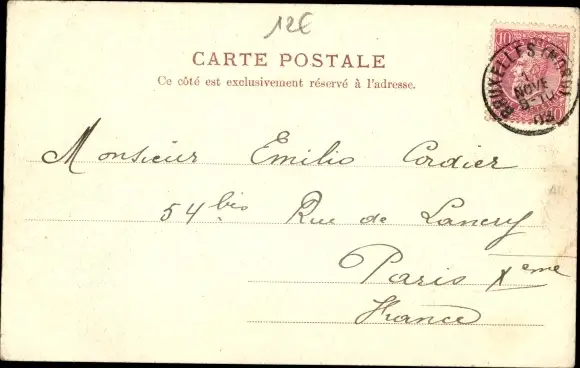 12€
CARTE POSTALE
Ce côté est exclusivement réservé à l'adresse.
10
BRUXELLES (NORD)
NOVE
03
Monsieur Emilio Cordier
54 bis Rue de Lancry
Paris Xeme
France